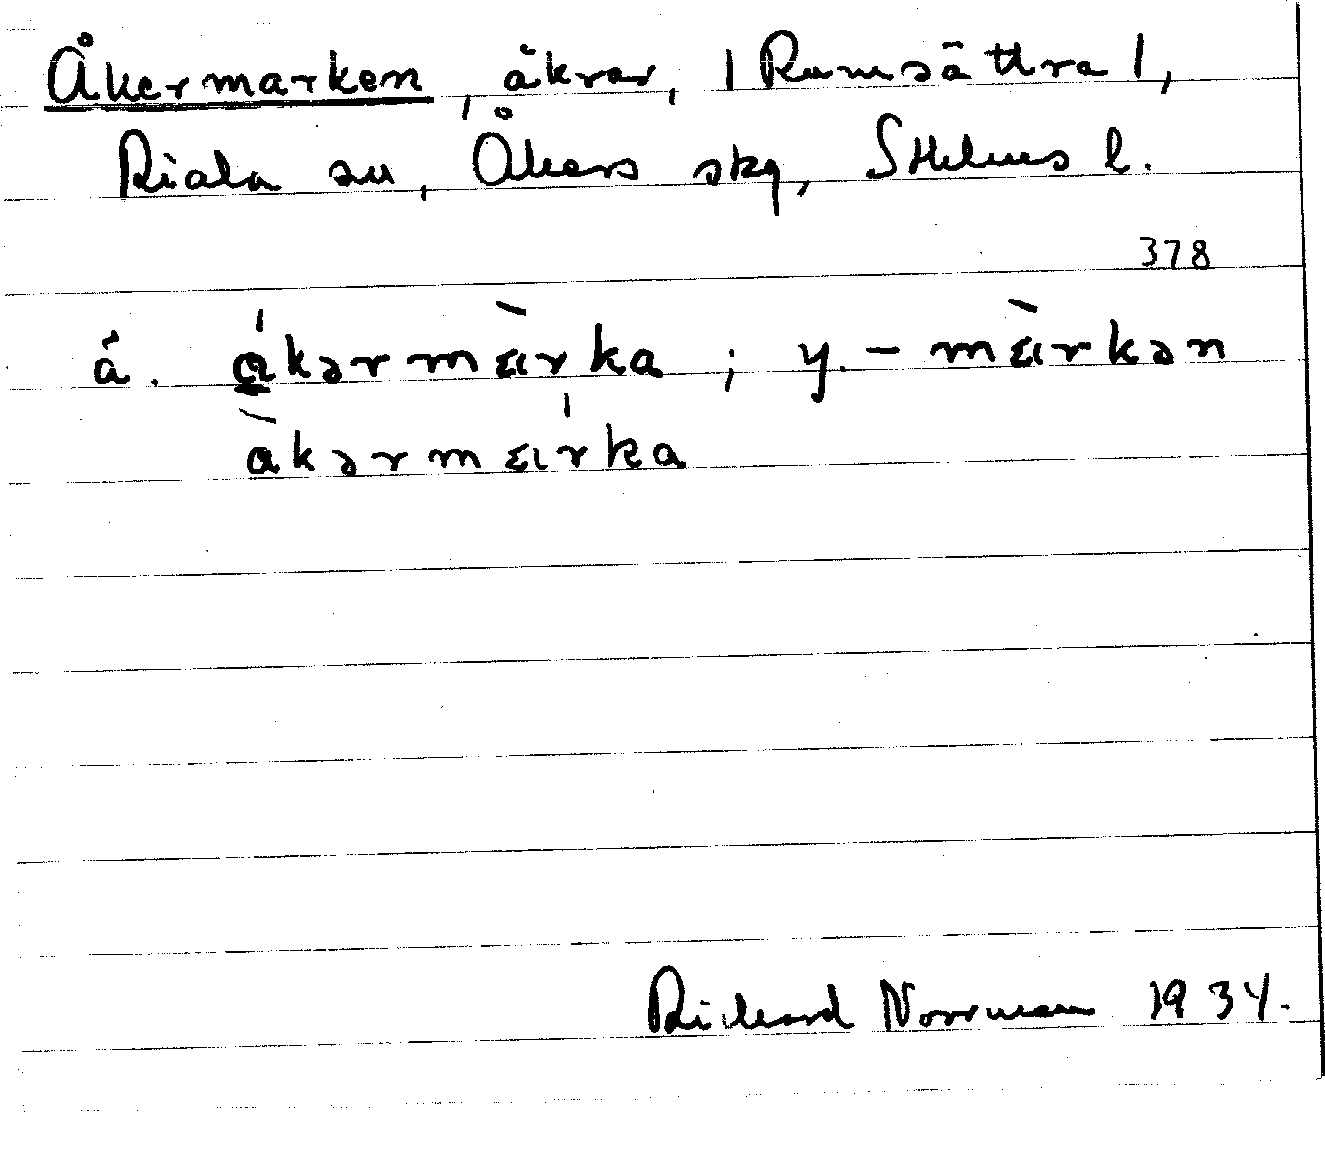 Åkermarken, åkrar, | Ramsättra |,
Riala sn, Åkers skg, Sthlms l.
378
ä. åkərmàrka ; y. - màrkən
àkərmárka
Rickard Norrman 1934.